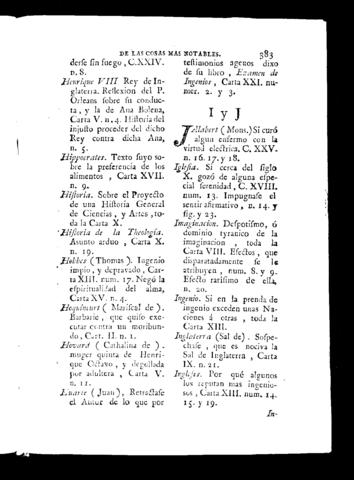 DE LAS COSAS MAS NOTABLES. 383
derse sin fuego, C. XXIV.
n. 8.
Henrique VIII Rey de In-
glaterra. Reflexion del P.
Orleans sobre su conduc-
ta, y la de Ana Bolena,
Carta V. n. 4. Historia del
injusto proceder del dicho
Rey contra dicha Ana,
n. 5.
Hippocrates. Texto suyo so-
bre la preferencia de los
alimentos, Carta XVII.
n. 9.
Historia. Sobre el Proyecto
de una Historia General
de Ciencias, y Artes, to-
da la Carta X.
Historia de la Theologia.
Asunto arduo, Carta X.
n. 19.
Hobbes (Thomas). Ingenio
impio, y depravado, Car-
ta XIII. num. 17. Negó la
espiritualidad del alma,
Carta XV. n. 4.
Hoquincurt (Mariscal de).
Barbarie, que quiso exe-
cutar contra un moribun-
do, Cart. II. n. 1.
Hovard (Cathalina de).
muger quinta de Henri-
que Octavo, y degollada
por adultera, Carta V.
n. 11.
Huarte (Juan), Retractase
el Autor de lo que por
testimonios agenos dixo
de su libro, Examen de
Ingenios, Carta XXI. nu-
mer. 2. y 3.
I y J
Jallabert (Mons.) Si curó
algun enfermo con la
virtud electrica. C. XXV.
n. 16. 17. y 18.
Iglesia. Si cerca del siglo
X. gozó de alguna espe-
cial serenidad, C. XVIII.
num. 13. Impugnase el
sentir afirmativo, n. 14. y
sig. y 23.
Imaginacion. Despotismo, ó
dominio tyranico de la
imaginacion, toda la
Carta VIII. Efectos, que
disparatadamente se le
atribuyen, num. 8. y 9.
Efecto rarisimo de ella,
n. 20.
Ingenio. Si en la prenda de
ingenio exceden unas Na-
ciones á otras, toda la
Carta XIII.
Inglaterra (Sal de). Sospe-
chase, que es nociva la
Sal de Inglaterra, Carta
IX. n. 21.
Ingleses. Por qué algunos
los reputan mas ingenio-
sos, Carta XIII. num. 14.
15. y 19.
In-